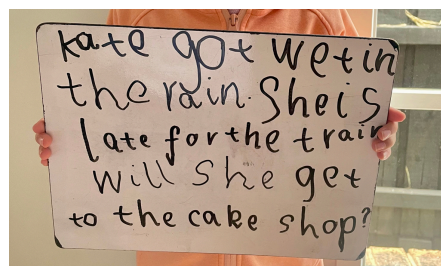 Kate got wet in
the rain. She is
late for the train
will she get
to the cake shop?